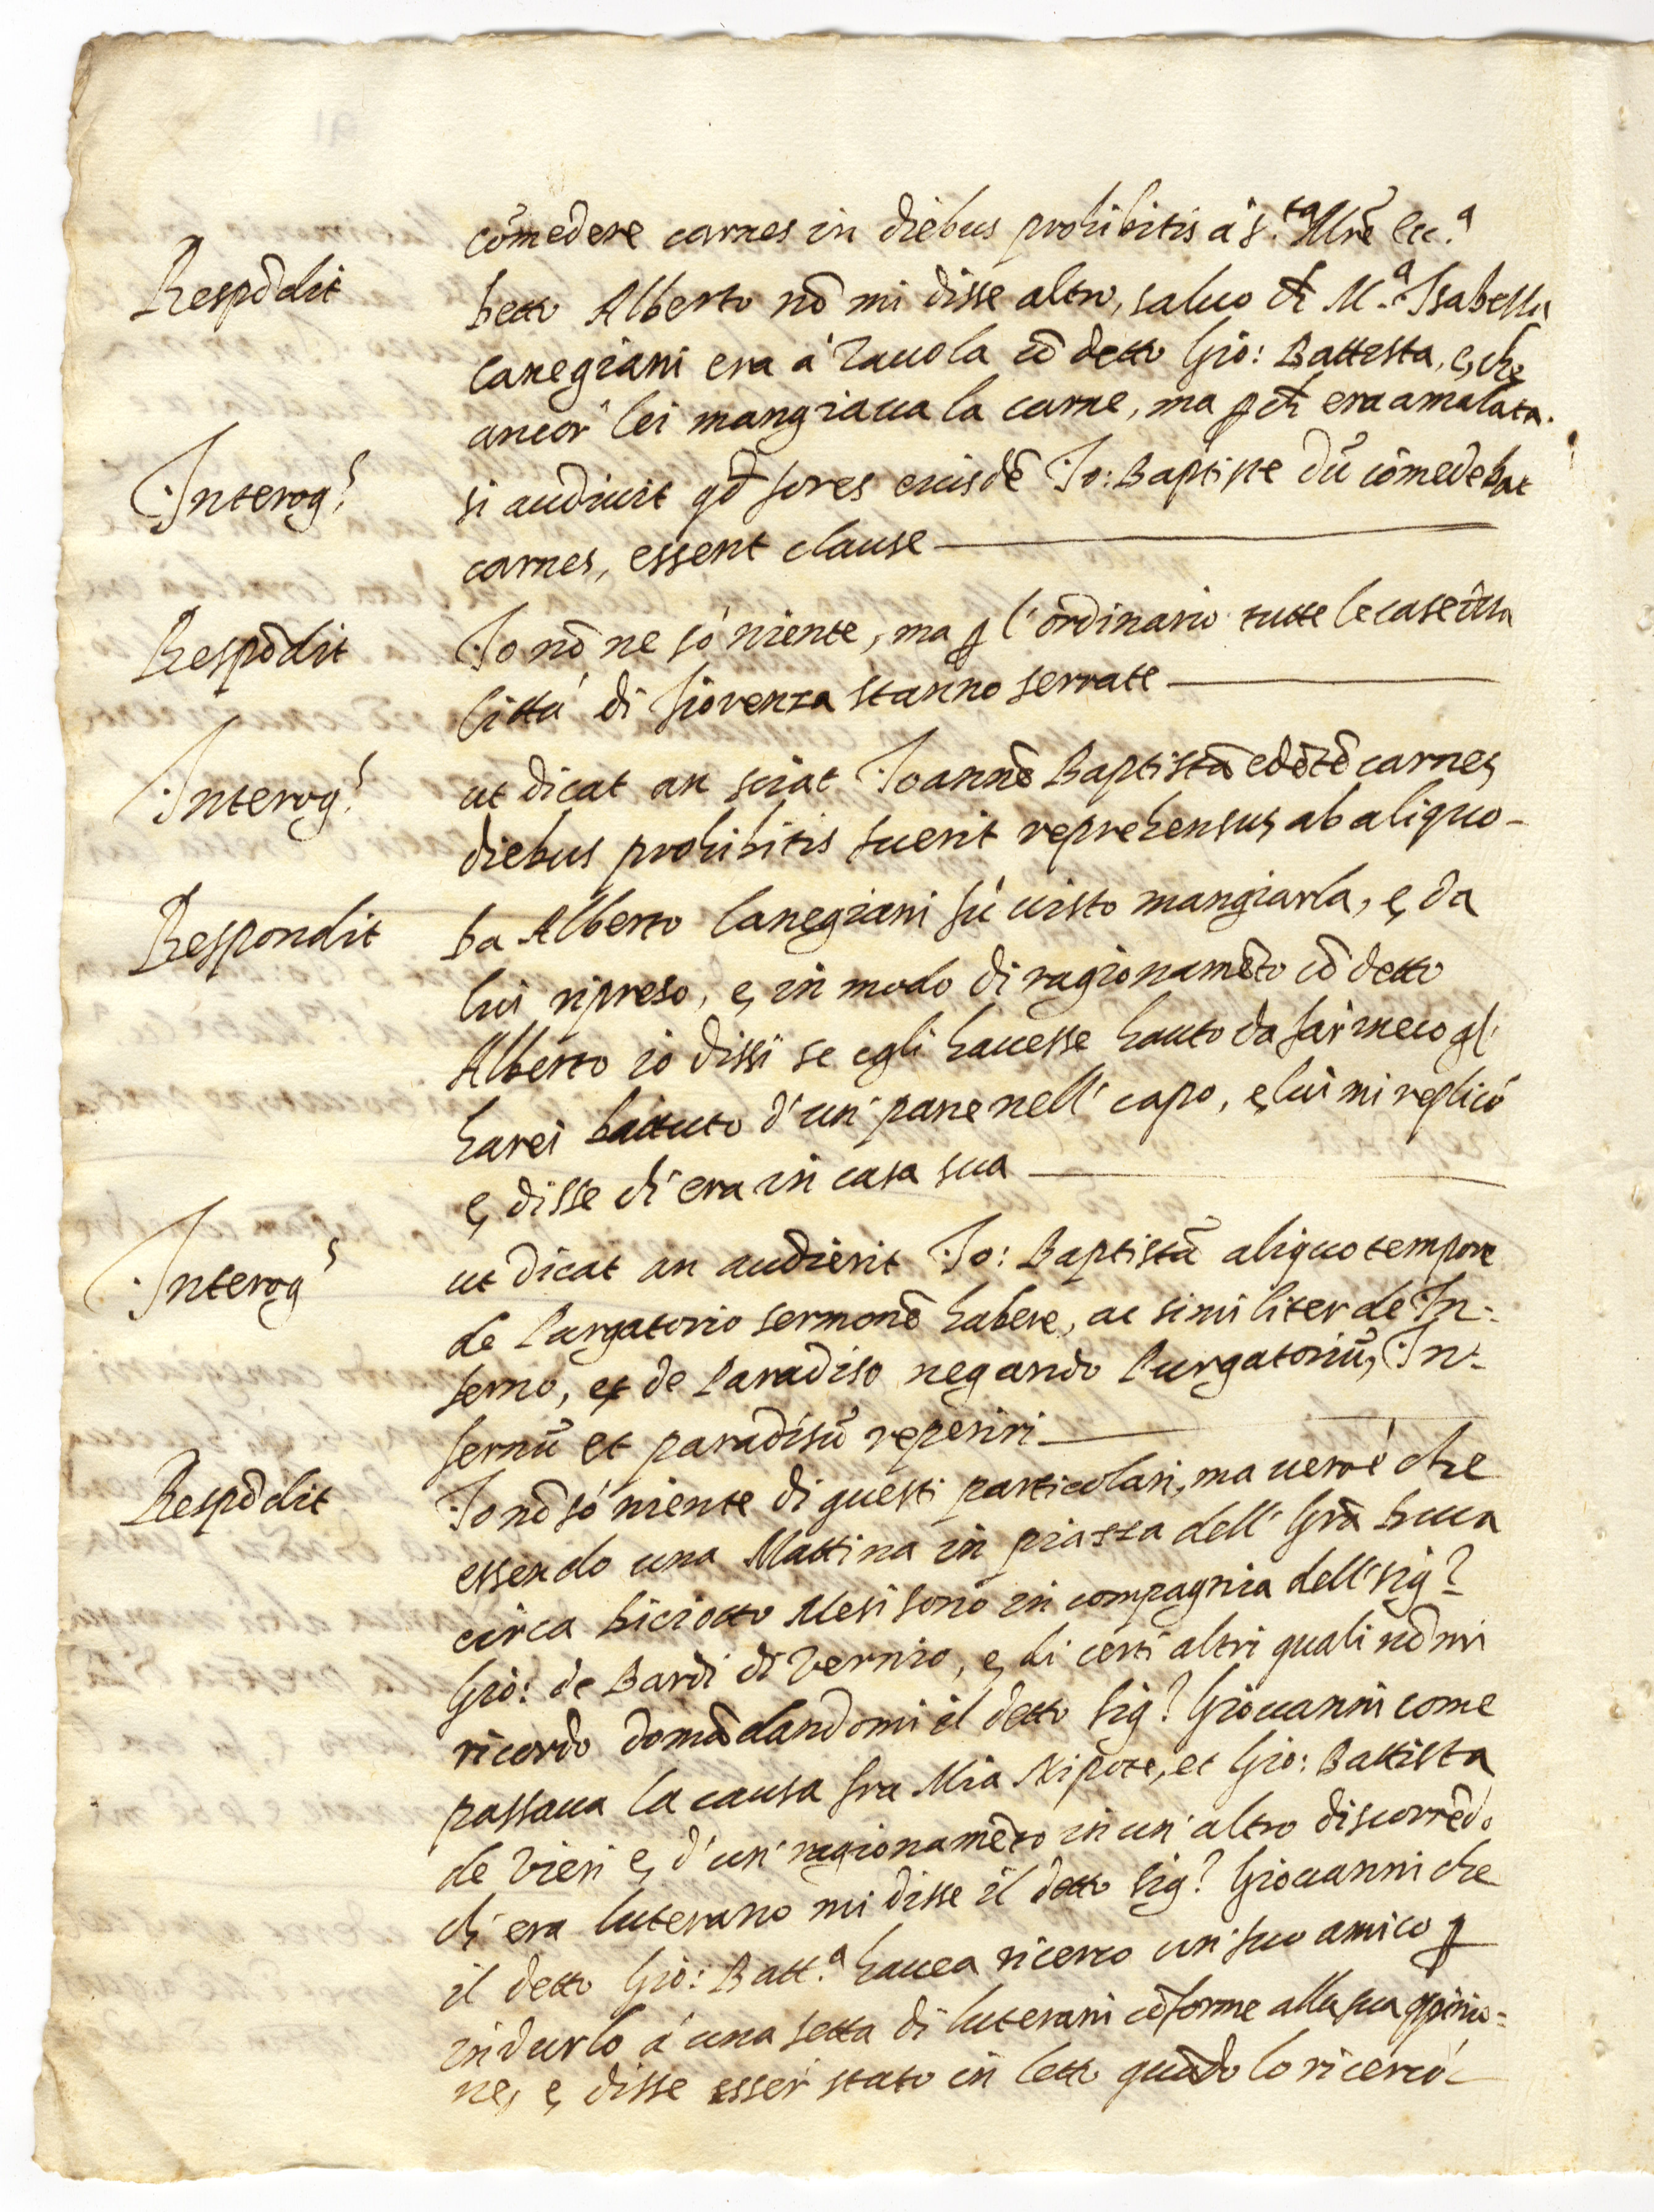 cõmedere carnes in diebus prohibitis à S.ta Mrẽ Ecc.a
Respõdit Detto Alberto nõ mi disse altro, saluo ch M.a Isabella
Canegiani era à Tauola cõ detto Gio: Battista, e, che
ancor' lei mangiaua la carne, ma pch era amalata.
Interog.s si audiuit qd fores eiusdẽ Io: Baptiste dũ cõmedebat
carnes, essent clause
Respõdit Io nõ ne sò niente, ma p l'ordinario tutte le case
Città di Fiorenza stanno serrate
Interog.s ut dicat an sciat Joannẽ Baptistã edẽtẽ carnes
diebus prohibitis fuerit reprehensus ab aliquo
Respondit Da Alberto Canegiani fù uisto mangiarla, e, da
lui ripreso, e, in modo di ragionamẽto cõ detto
Alberto io dissi se egli hauesse hauto da far meco gl'
harei battuto d'un' pane nell' capo, e, lui mi replicò
e, disse ch' era in casa sua
Interog.s ut dicat an audierit Io: Baptistã aliquo tempore
de Purgatorio sermonẽ habere, ac similiter de In-
ferno, et de Paradiso negando Purgatoriũ, In-
fernũ et paradisũ reperiri
Respõdit Io nõ sò niente di questi particolari, ma uero è che
essendo una Mattina in piazza dell' Grã Duca
circa diciotto Mesi sono in compagnia dell' sig.r
Gio: de Bardi di Vernio, e, di certi altri quali nõ mi
ricordo domãdandomi il detto Sig.r Giouanni come
passaua la causa fra Mia Nipote, et Gio: Battista
de Vieri e, d'un' ragionamẽto in un' altro discorrẽdo
ch' era luterano mi disse il detto Sig.r Giouanni che
il detto Gio: Batt.a hauea ricerco un' suo amico p
indurlo à una setta di luterani cõforme alla sua opinio-
ne, e, disse esser' stato in letto quãdo lo ricercò